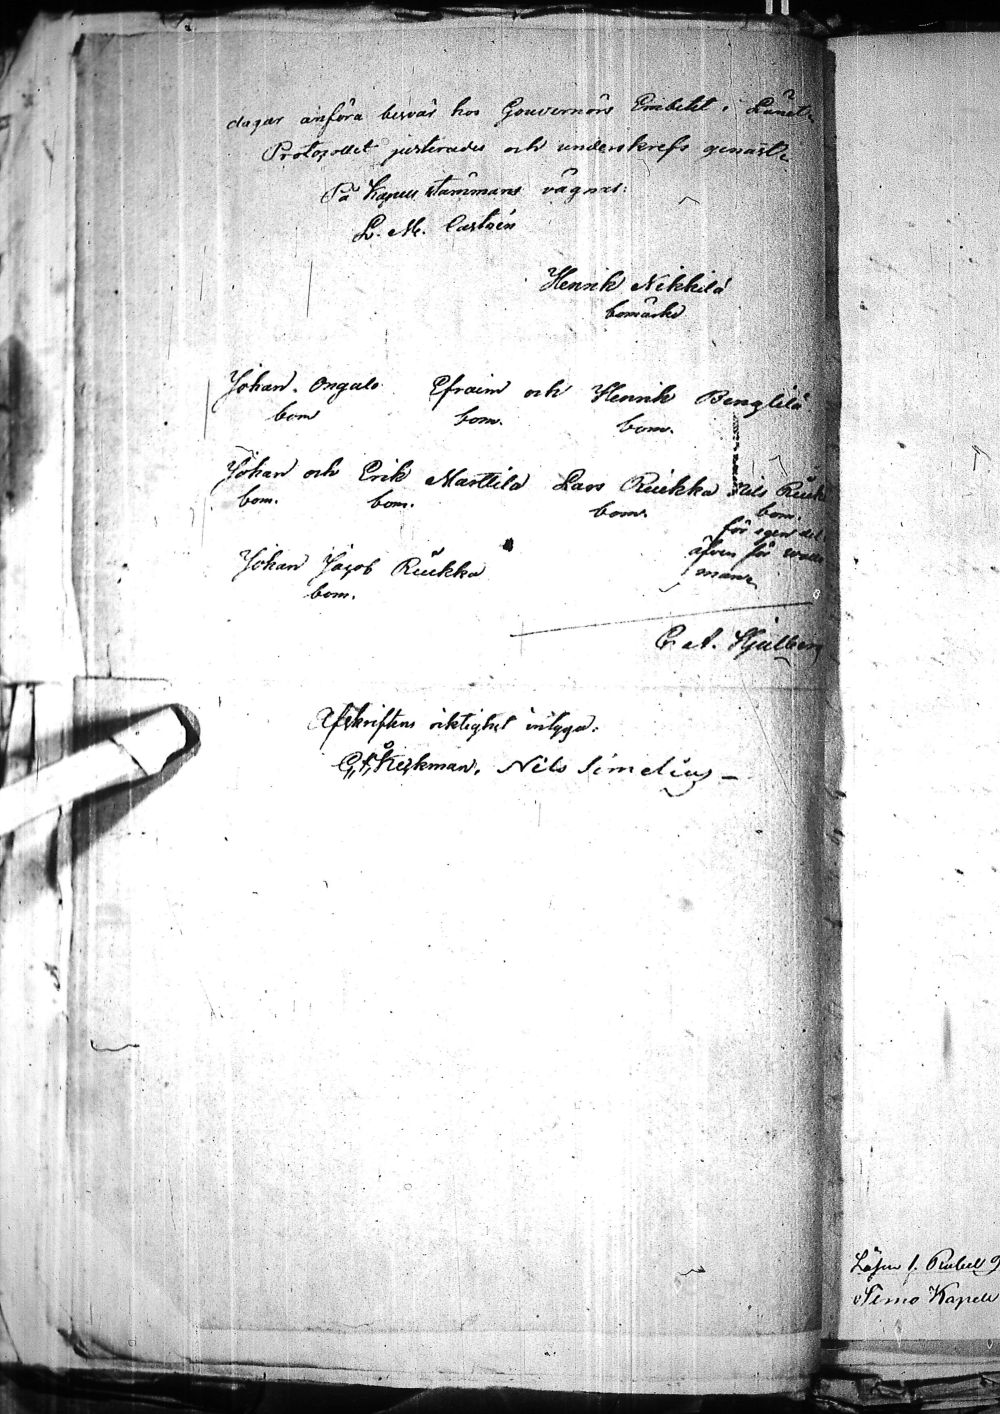 dagar anföra besvär hos Gouvernörs Embetet i Länet.
Protocollet justerades och underskrefs genast.
På Kapell Stammans vägnar:
L. M. Castrén
Henrik Nikkilä
bomärke
Johan Ongalo Efraim och Henrik Bengtilä
bom bom. bom.
Johan och Erik Marttila Lars Ruikka Nils
bom. bom. bom. bom.
för egen del
äfven för
Johan Jacob Ruikka
bom.
C. A. Hjulberg
Afskriftens riktighet intyga:
Kerkman. Nils Simelius
Kapell